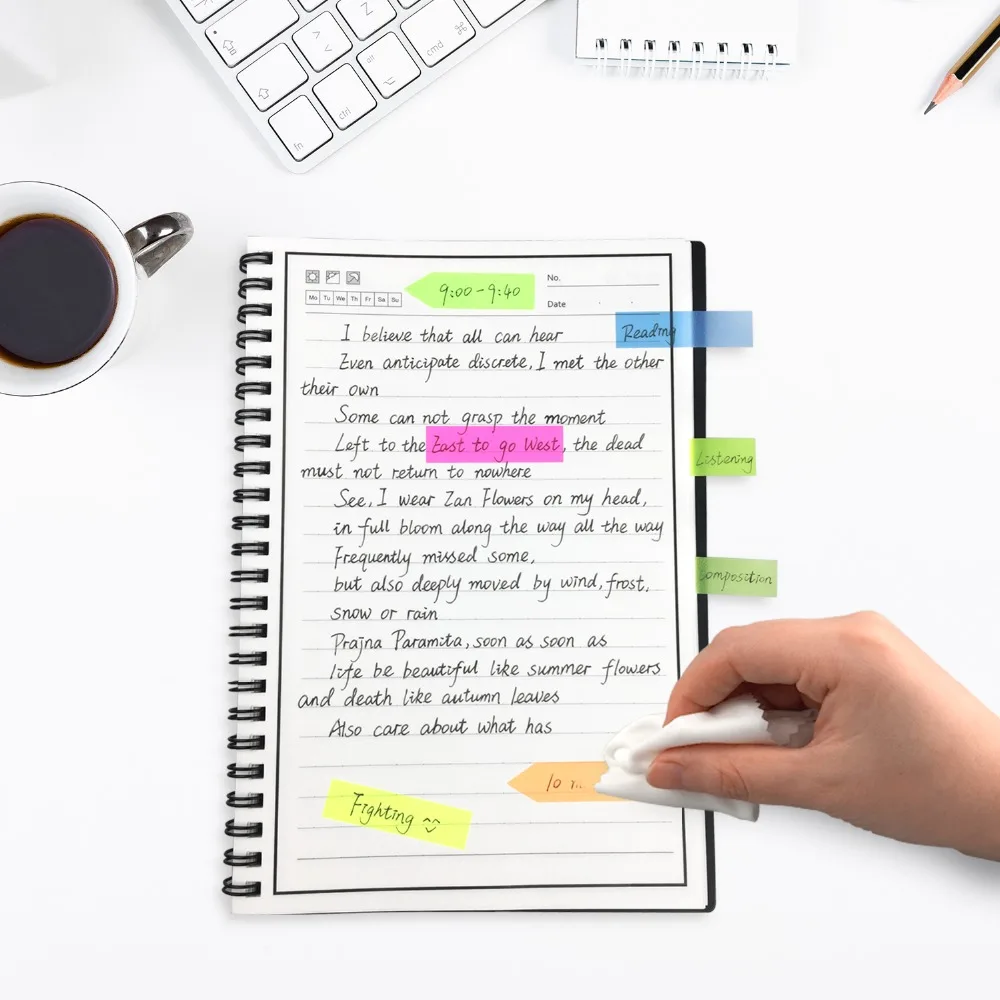 Z
cmd ⌘
alt
ctrl
fn
Mo Tu We Th Fr Sa Su
9:00-9:40
No.
Date
Reading
I believe that all can hear
Even anticipate discrete, I met the other
their own
Some can not grasp the moment
Left to the East to go West, the dead
must not return to nowhere
Listening
See, I wear Zan Flowers on my head,
in full bloom along the way all the way
Frequently missed some,
but also deeply moved by wind, frost,
Composition
snow or rain
Prajna Paramita, soon as soon as
life be beautiful like summer flowers
and death like autumn leaves
Also care about what has
10
Fighting